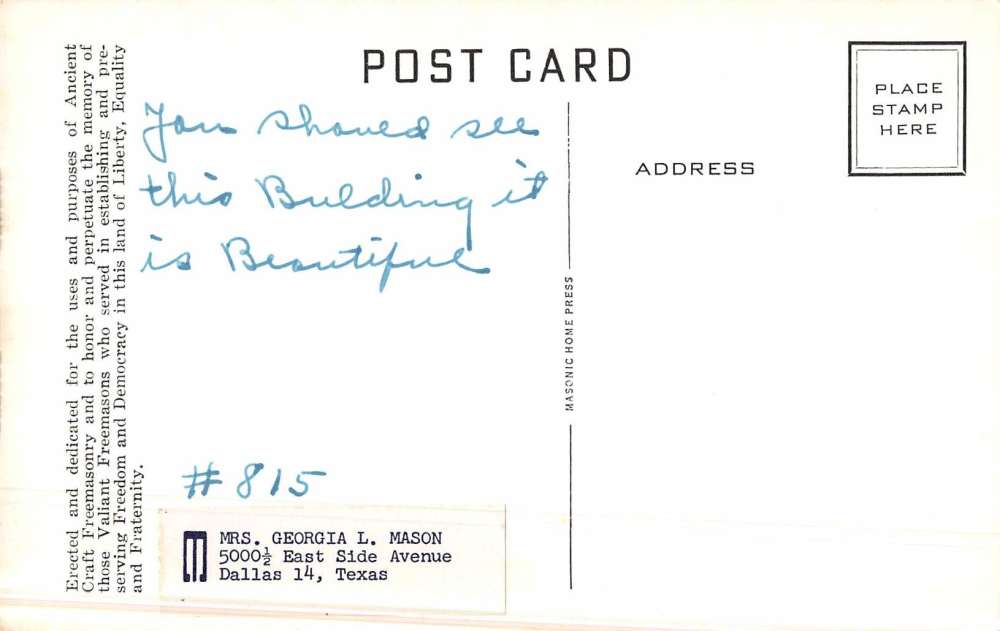 POST CARD
PLACE
STAMP
HERE
ADDRESS
Erected and dedicated for the uses and purposes of Ancient
Craft Freemasonry and to honor and perpetuate the memory of
those Valiant Freemasons who served in establishing and pre-
serving Freedom and Democracy in this land of Liberty, Equality
and Fraternity.
You should see
this Building it
is Beautiful
MASONIC HOME PRESS
#815
MRS. GEORGIA L. MASON
5000½ East Side Avenue
Dallas 14, Texas